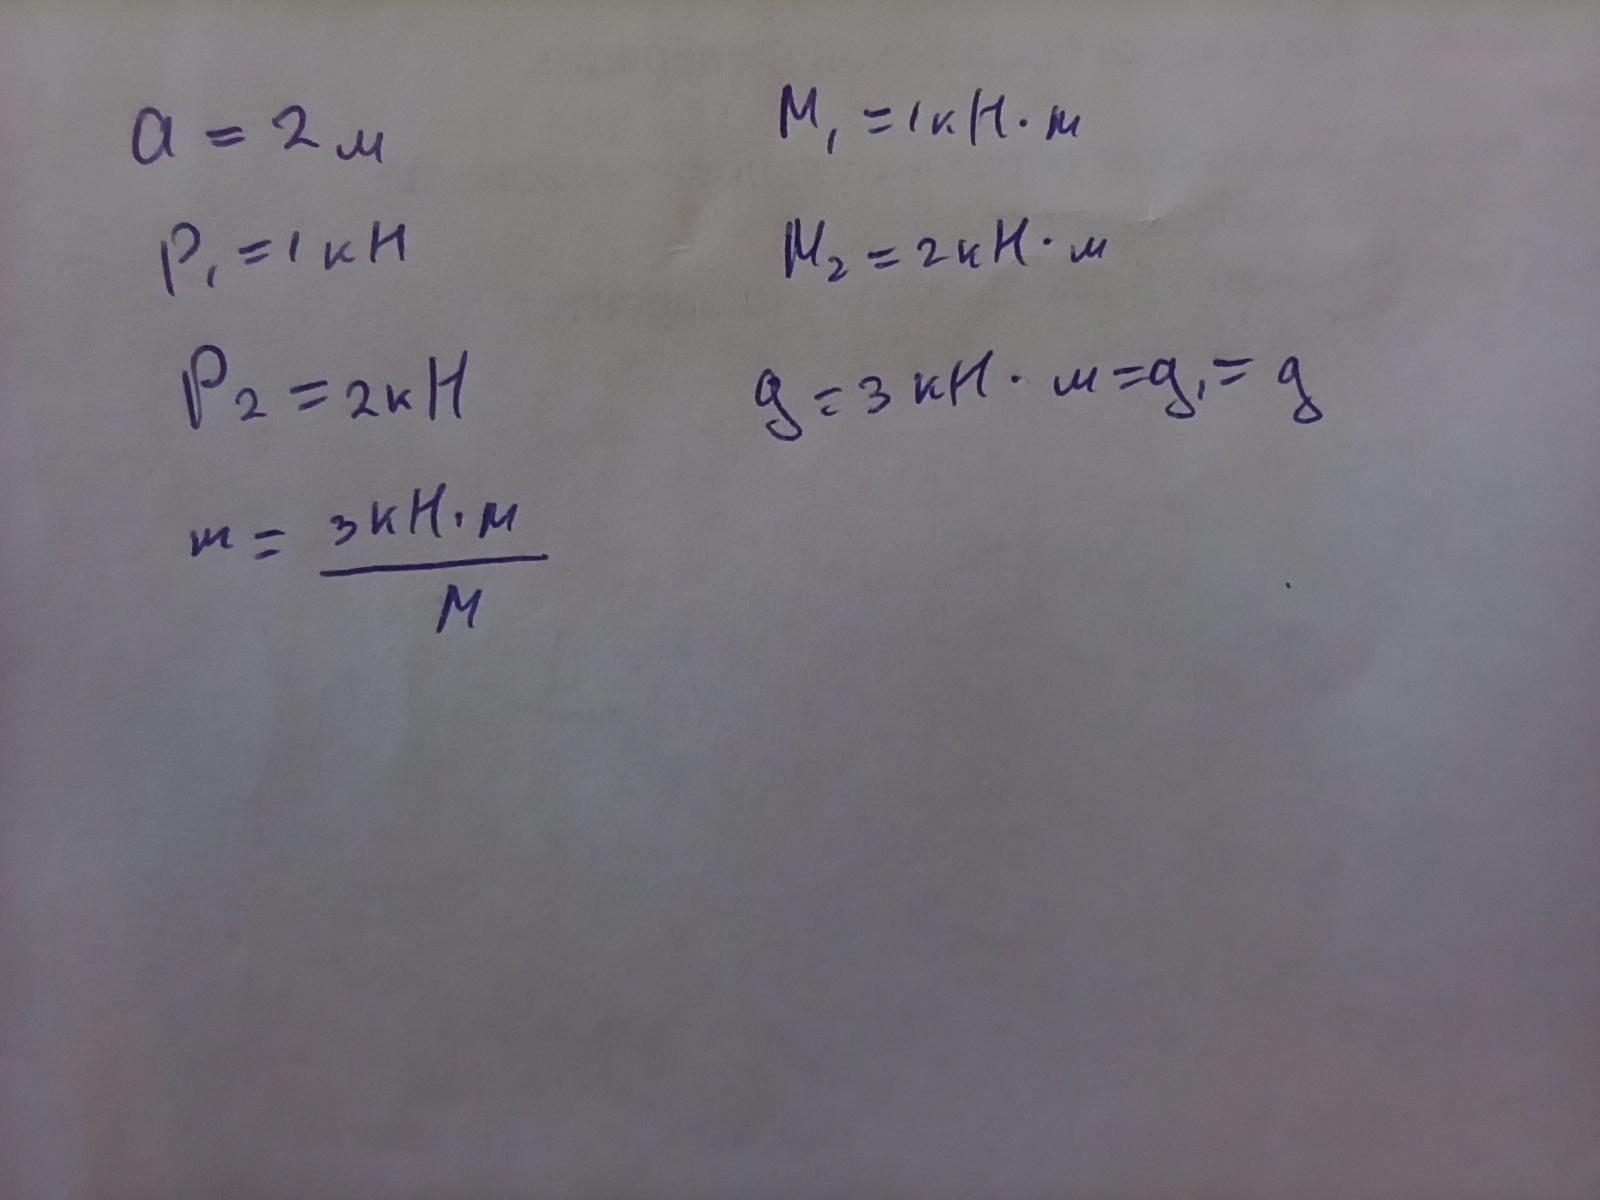 a = 2 м
P₁ = 1 кН
P₂ = 2 кН
m = 3 кН · м / м
M₁ = 1 кН · м
M₂ = 2 кН · м
g = 3 кН · м = g₁ = g